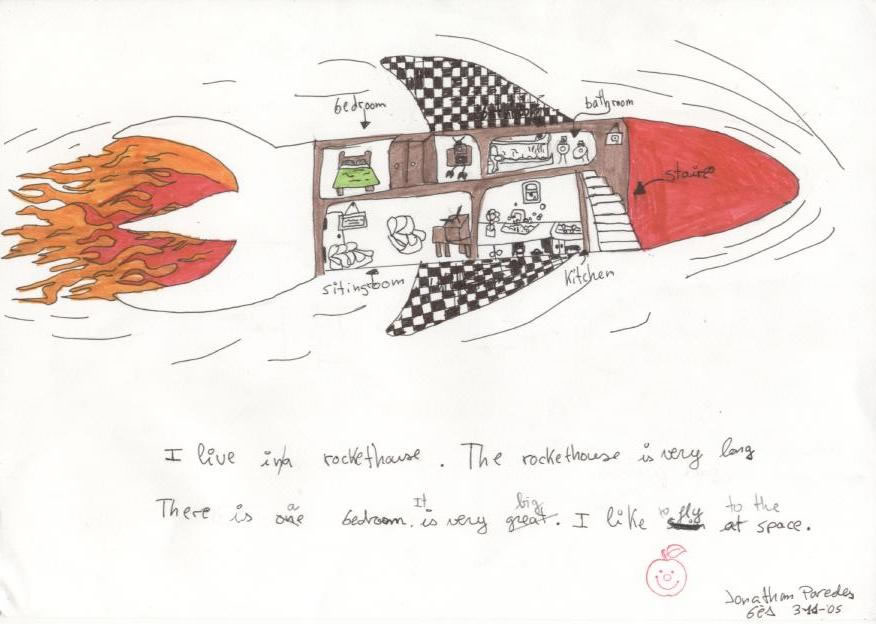 bedroom
bathroom
stairs
sitingroom
Kitchen
I live in a rockethouse. The rockethouse is very long
a It big to fly to the
There is one bedroom. is very great. I like at space.
Jonathan Paredes